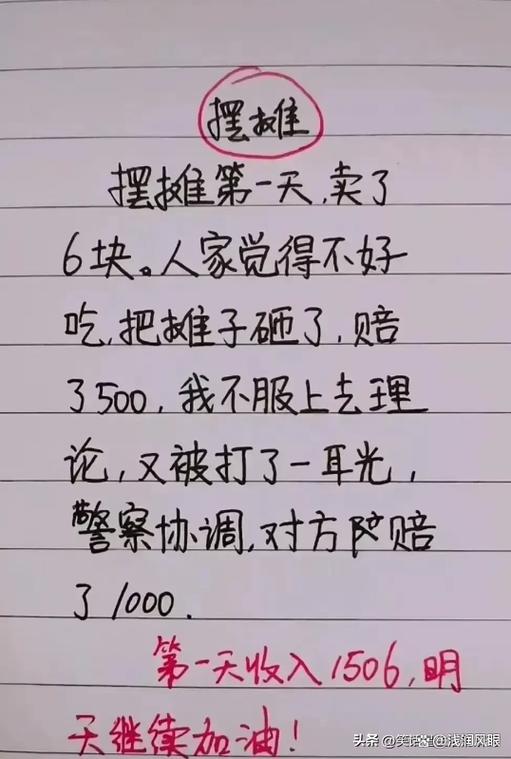 摆摊
摆摊第一天,卖了
6块。人家觉得不好
吃,把摊子砸了,赔
了500,我不服上去理
论,又被打了一耳光,
警察协调,对方陪赔
了1000.
第一天收入1506,明
天继续加油!
头条@浅润风眼